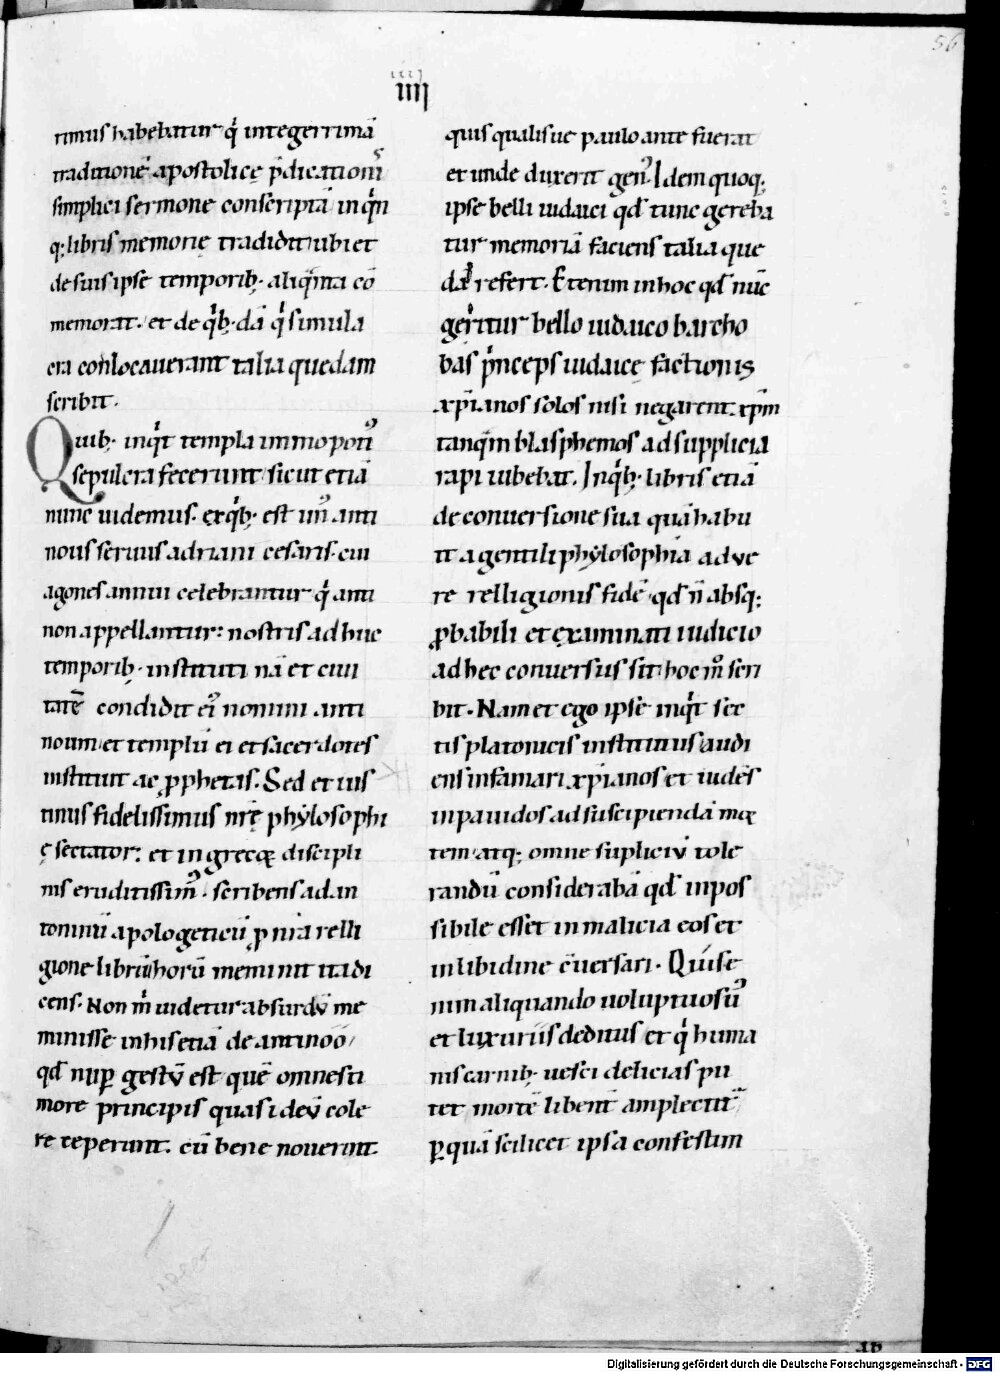 56
iiii
IIII
timus habebatur q̇ integerrimā
traditionē apostolicę p̄dicationis
simplici sermone conscriptā in q̇n
q; libris memorię tradidit ubi et
de suis ipse temporib; aliq̄nta cō
memorat. et de q̇b; dā q̇ simula
cra conlocauerant talia quedam
scribit.
Quib; inq̇t templa immo poti᾽
sepulcra fecerunt sicut etiā
nunc uidemus. ex q̇b; est un᾽ anti
nous seruus adriani cesaris. cui
agones annui celebrantur q̇ anti
non appellantur: nostris ad huc
temporib; instituti nā et ciui
tatē condidit ei᾽ nomini anti
noum et templū ei et sacerdotes
instituit ac ꝓphetas. Sed et ius
tinus fidelissimus nr̄ę phylosophi
ę sectator: et in grecꝗ discipli
nis eruditissim᾽. scribens ad an
toninū apologeticū ꝓ nr̄a relli
gione librū horū meminit ita di
cens. Non m̄ uidetur absurdū me
minisse in his etiā de antinoo
qd̄ nup̱ gestū est quē omnes ti
more principis quasi deū cole
re ceperunt. cū bene nouerint
quis qualisue paulo ante fuerat
et unde duxerit gen᾽. Idem quoq;
ipse belli iudaici qd̄ tunc gereba
tur memoriā faciens talia que
dā refert. Etenim in hoc qd̄ nūc
geritur bello iudaico barcho
bas p̄nceps iudaicę factionis
xp̄ianos solos nisi negarent xp̄m
tanq̄m blasphemos ad supplicia
rapi iubebat. In q̇b; libris etiā
de conuersione sua quā habu
it a gentili phylosophia ad ue
re relligionis fidē qd̄ n̄ absq;
ꝓbabili et examinati iudicio
ad hec conuersus sit hoc m̊ scri
bit. Nam et ego ipse inq̇t sec
tis platonicis institutus audi
ens infamari xp̄ianos et uidēs
inpauidos ad suscipiendā mor
tem atq; omne supliciū tole
randū considerabā qd̄ inpos
sibile esset in malicia eos et
in libidine c̄uersari. Quis e
nim aliquando uoluptuosu᾽
et luxuriis deditus et q̇ huma
nis carnib; uesci delicias pu
tet mortē libent amplectit᾽
p̱ quā scilicet ipsa confestim
Digitalisierung gefördert durch die Deutsche Forschungsgemeinschaft - DFG